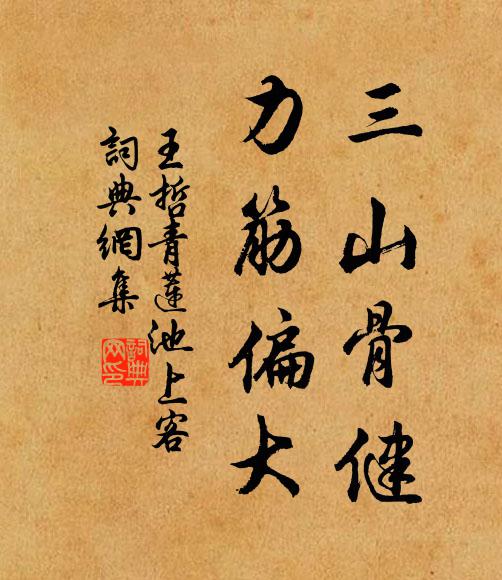 三山骨健
力筋偏大
王哲青蓮池上客
詞典網集
詞典網印